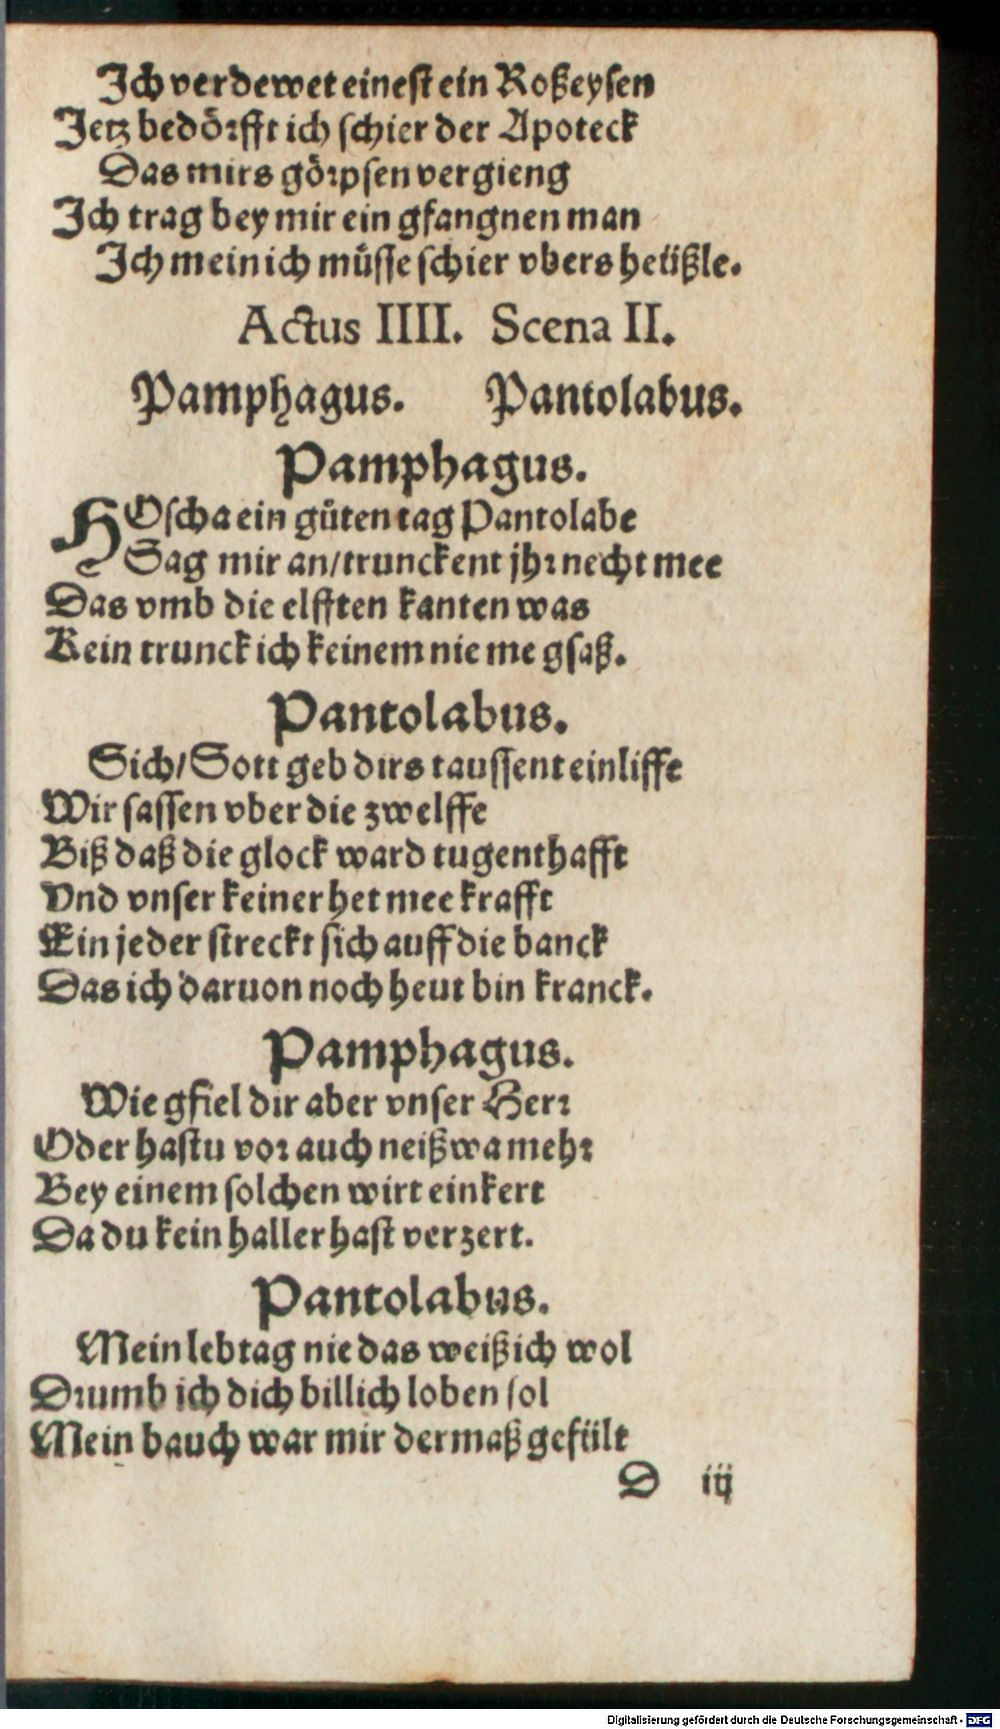 Ich verdewet einest ein Roßeysen
Jetz bedörfft ich schier der Apoteck
Das mirs görpsen vergieng
Ich trag bey mir ein gfangnen man
Ich mein ich müsse schier vbers heüßle.
Actus IIII. Scena II.
Pamphagus. Pantolabus.
Pamphagus.
HOscha ein gůten tag Pantolabe
Sag mir an/trunckent jhr necht mee
Das vmb die elfften kanten was
Kein trunck ich keinem nie me gsaß.
Pantolabus.
Sich/Gott geb dirs taussent einliffe
Wir sassen vber die zwelffe
Biß daß die glock ward tugenthafft
Vnd vnser keiner het mee krafft
Ein jeder streckt sich auff die banck
Das ich daruon noch heut bin kranck.
Pamphagus.
Wie gfiel dir aber vnser Herr
Oder hastu vor auch neißwa mehr
Bey einem solchen wirt einkert
Da du kein haller hast verzert.
Pantolabus.
Mein lebtag nie das weiß ich wol
Drumb ich dich billich loben sol
Mein bauch war mir dermaß gefült
D iij
Digitalisierung gefördert durch die Deutsche Forschungsgemeinschaft - DFG